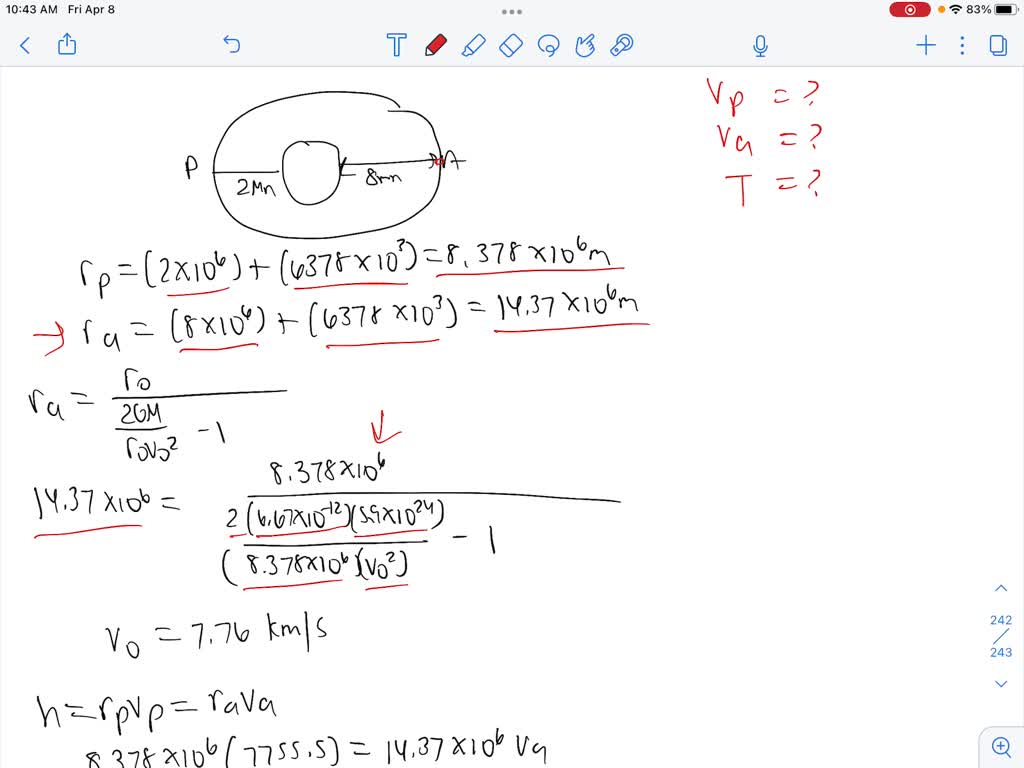 10:43 AM Fri Apr 8
83%
T
Vp = ?
Va = ?
T = ?
P
2Mm
8mm
A
rp = (2×10⁶) + (6378×10³) = 8.378×10⁶m
→ ra = (8×10⁶) + (6378×10³) = 14.37×10⁶m
ra = r₀ / (2GM / r₀v₀² - 1)
14.37×10⁶ = 8.378×10⁶ / (2(6.67×10⁻¹²)(5.9×10²⁴) / (8.378×10⁶)(v₀²) - 1)
v₀ = 7.76 km/s
h = rpvp = rava
8.378×10⁶(7755.5) = 14.37×10⁶ va
242
/
243